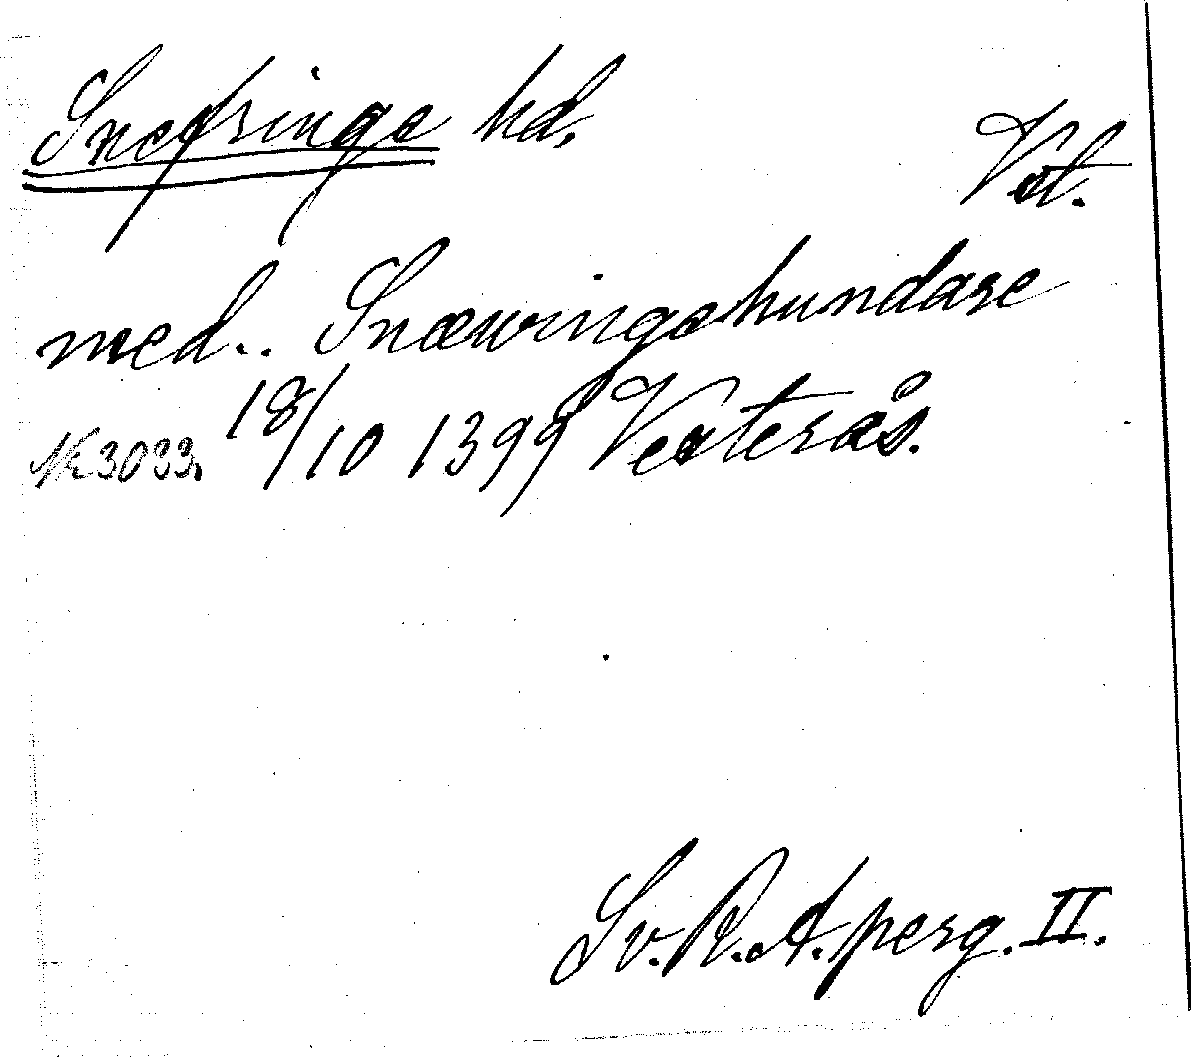 Snefringe hd.
Vst.
med.. Snæwingehundare
Nr 3033. 18/10 1399 Vesterås.
Sv. R. A. perg. II.